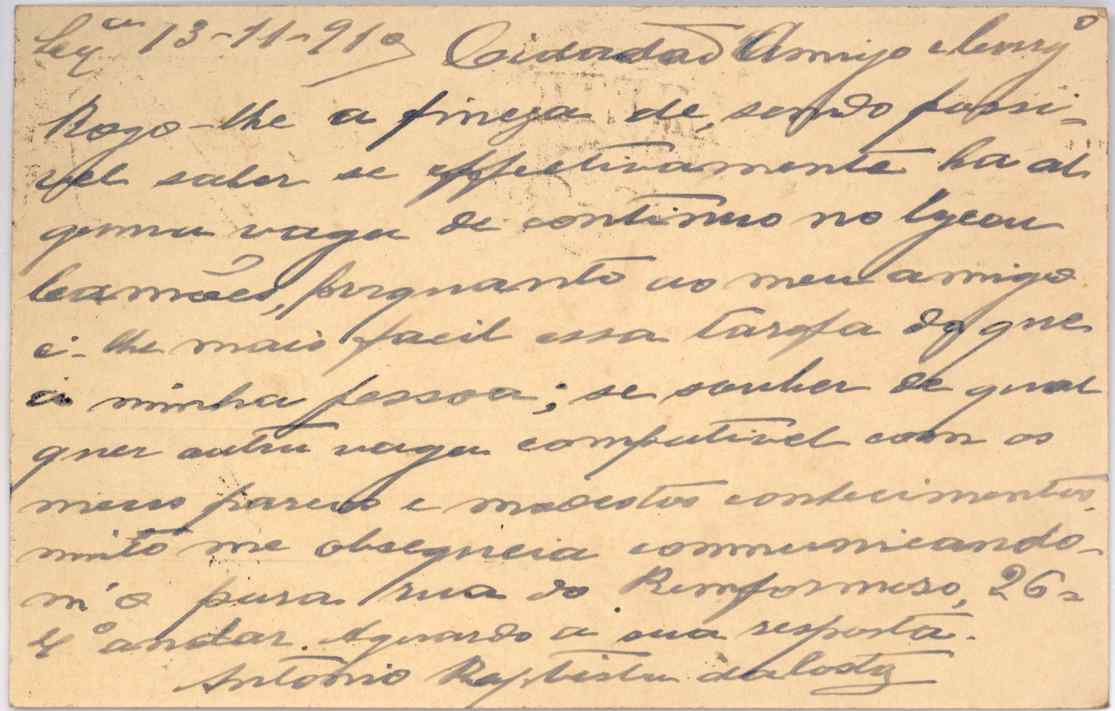 13-11-910 Cidadão Amigo e Corrg.º
Rogo-lhe a fineza de, sendo possi-
vel saber se effectivamente ha al
guma vaga de continuo no lyceu
Camões, porquanto ao meu amigo
é-lhe mais facil essa tarefa do que
á minha pessoa; se souber de qual
quer outra vaga compativel com os
meus parcos e modestos conhecimentos
muito me obsequeia communicando-
m'o para rua do Bemformoso, 26-
4º andar. Aguardo a sua resposta.
Antonio Baptista da Costa